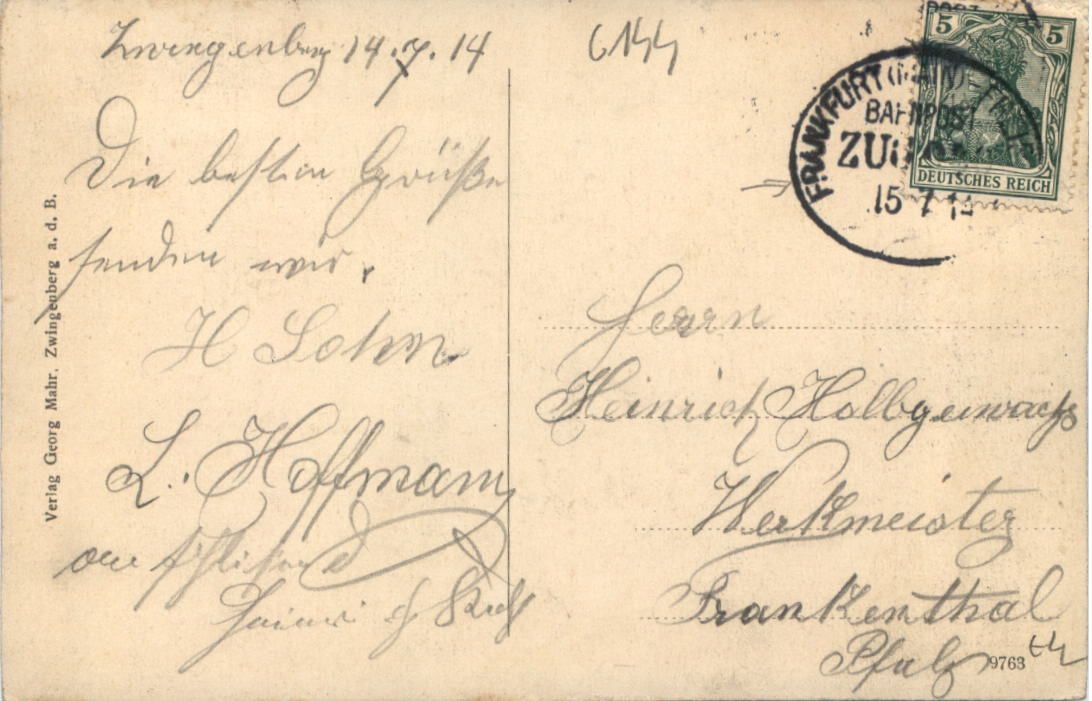 Zwingenberg 14.7.14
Die besten Grüße
senden wir.
H Sohn
L. Hoffmann
Verlag Georg Mahr, Zwingenberg a. d. B.
6144
FRANKFURT (MAIN)
BAHNPOST
ZUG
15 7 14
5 5
DEUTSCHES REICH
Herrn
Heinrich Holbgewachs
Werkmeister
Frankenthal
Pfalz
9763